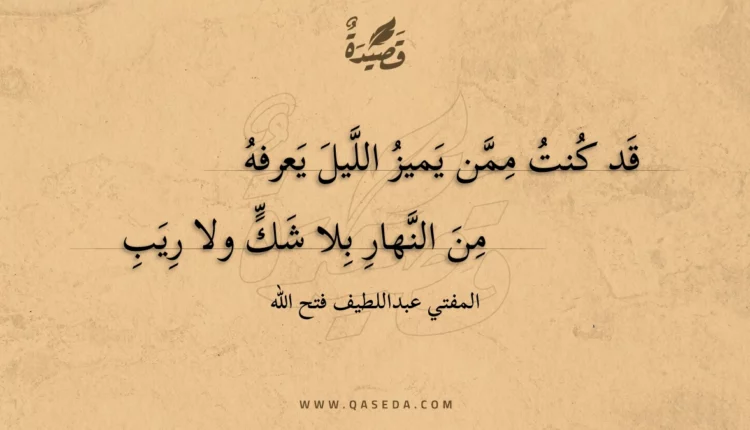 قَصِيْدَةٌ
قَد كُنتُ مِمَّن يَميزُ اللَّيلَ يَعرفهُ
مِنَ النَّهارِ بِلا شَكٍّ ولا رِيَبِ
المفتي عبداللطيف فتح الله
WWW.QASEDA.COM